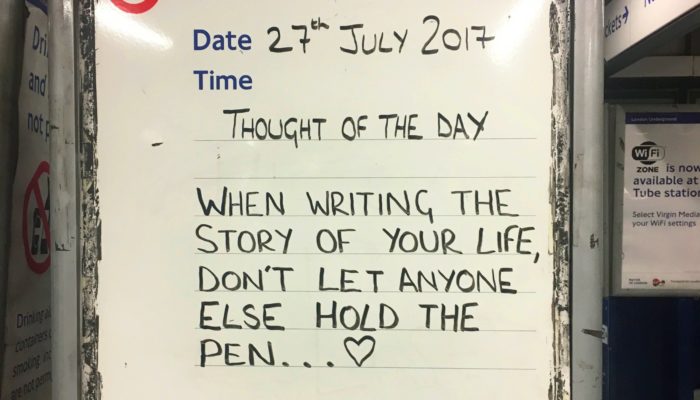 Date 27th JULY 2017
Time
THOUGHT OF THE DAY
WHEN WRITING THE
STORY OF YOUR LIFE,
DON'T LET ANYONE
ELSE HOLD THE
PEN...♡
and
not
Drinking
containers
smoking
are not
London Underground
WiFi
ZONE is now
available at
Tube station
Select Virgin Media
your WiFi settings